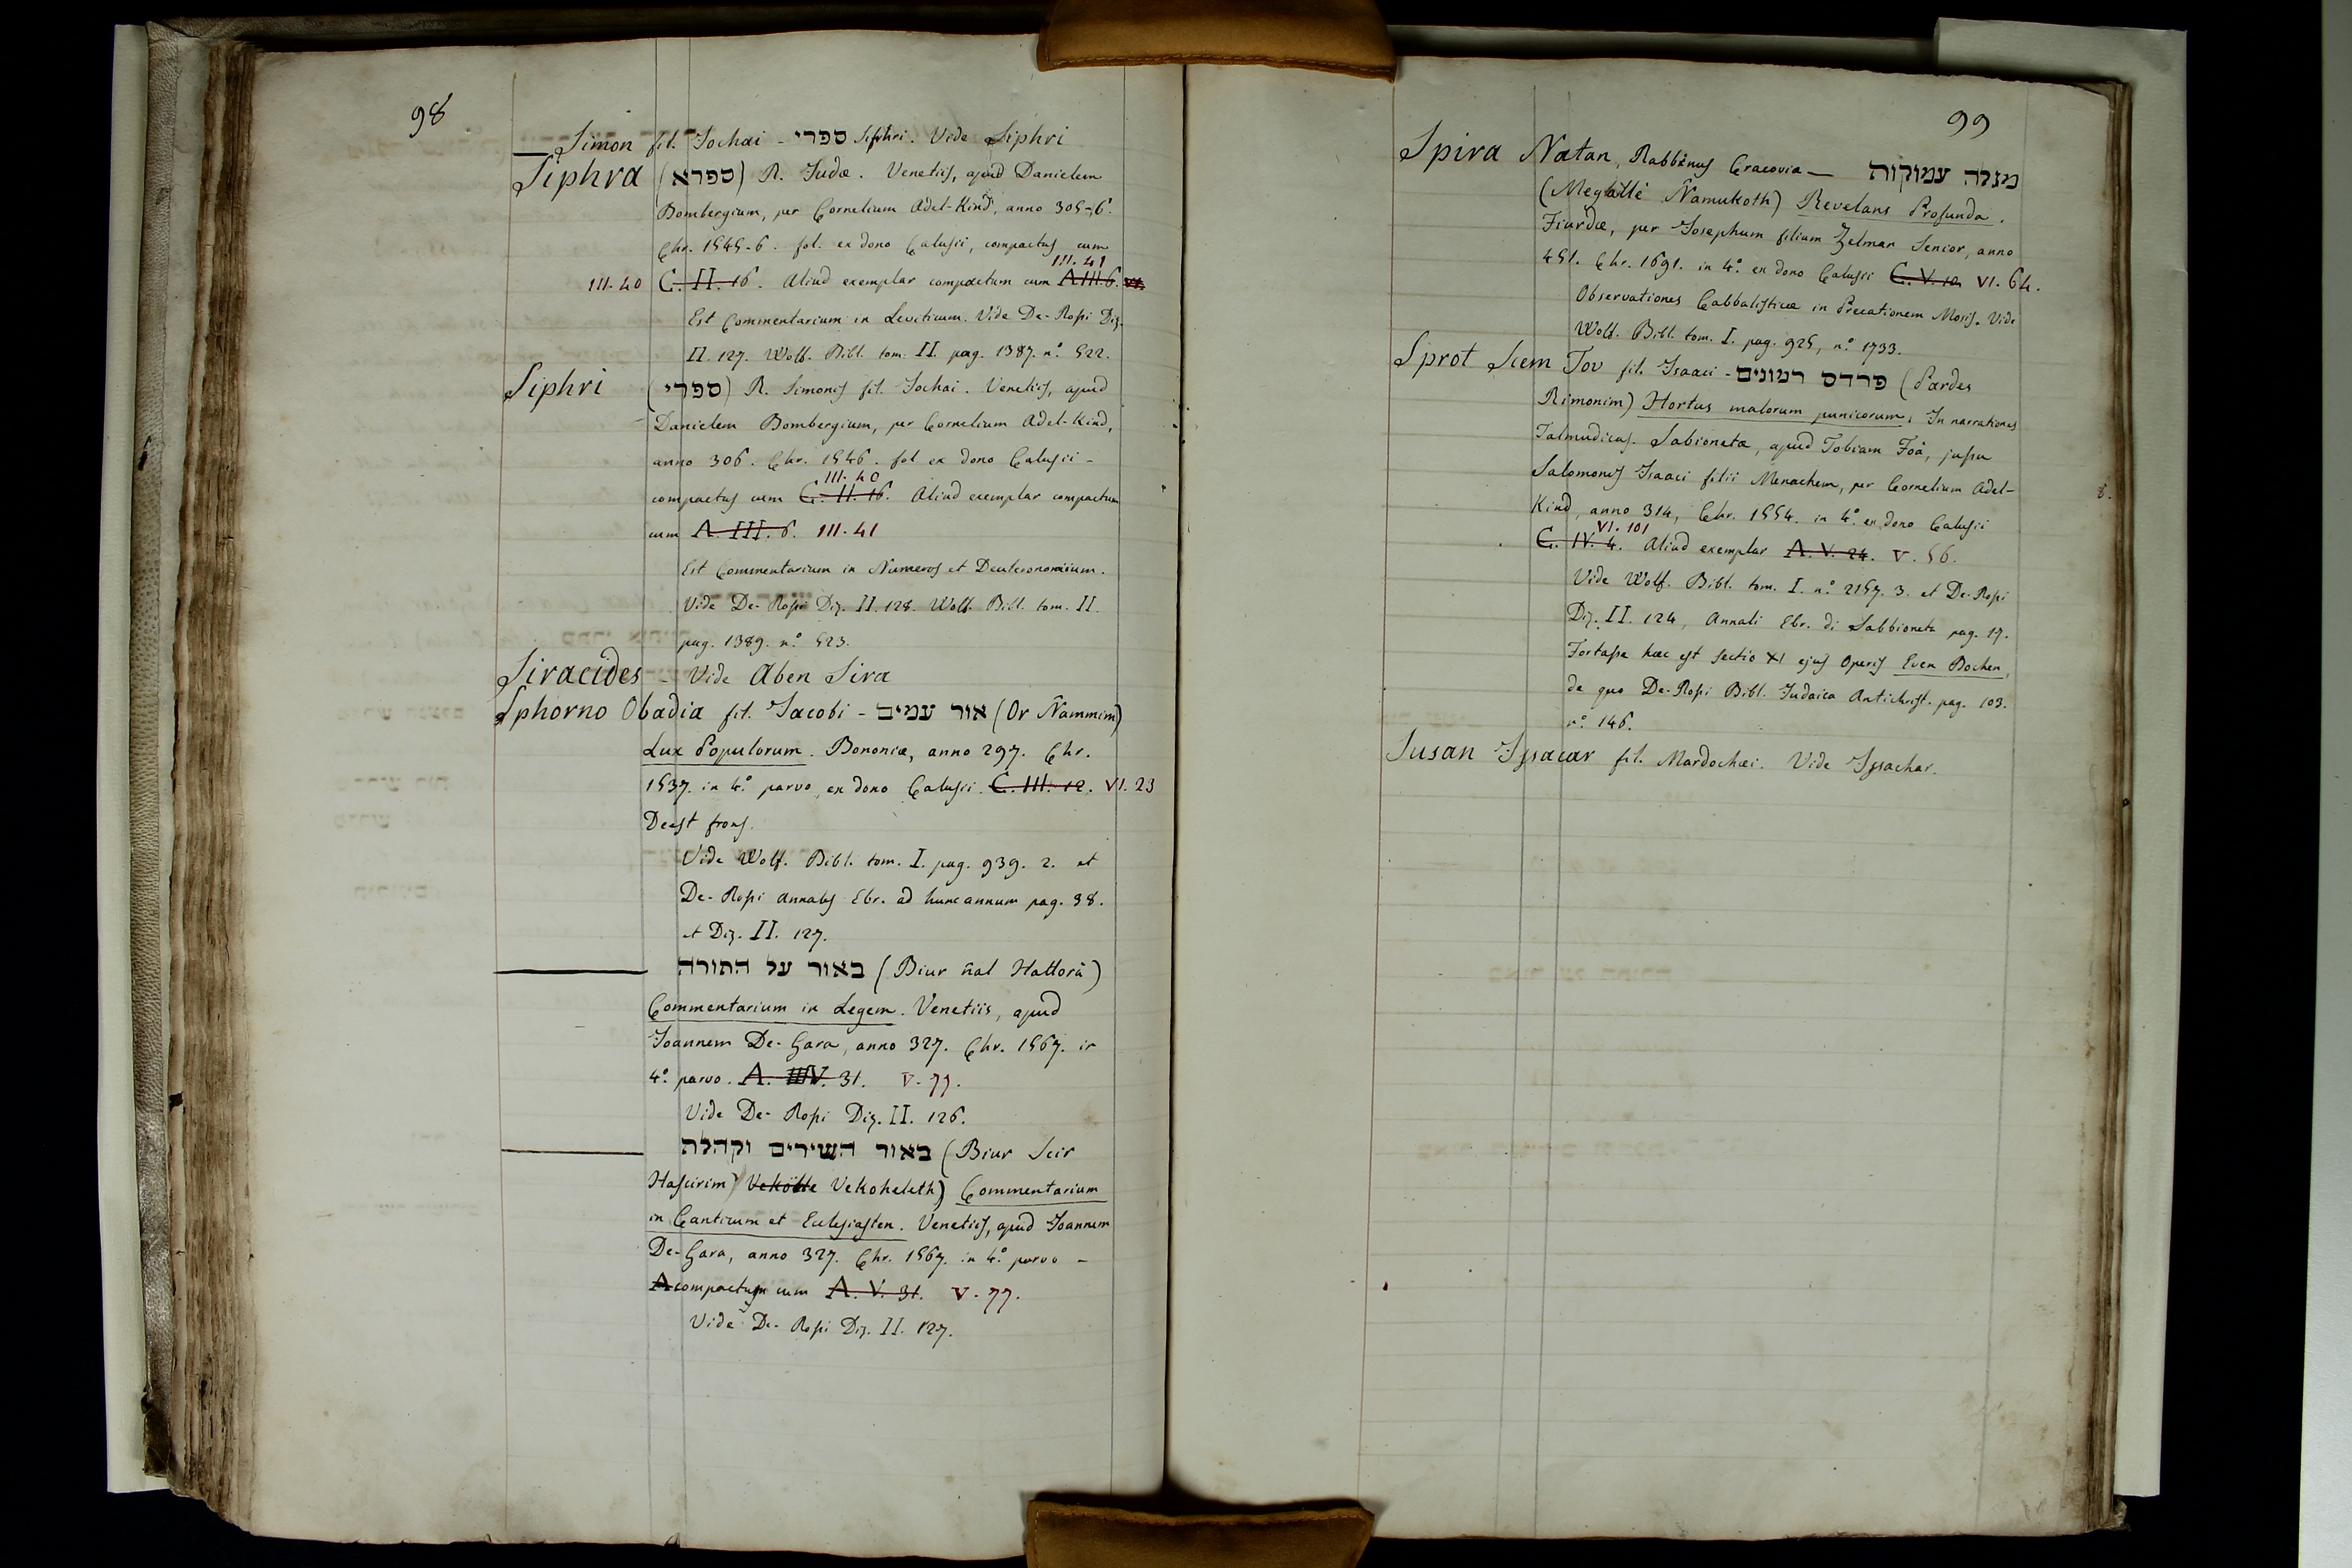 98
Simon fil. Jochai - ספרי Siphri. Vide Siphri
Siphra (ספרא) R. Judæ. Venetiis, apud Danielem
Bombergium, per Cornelium Adel-Kind, anno 305-6.
Chr. 1545-6. fol. ex dono Calusii, compactus cum
III. 41
III. 40 C. II. 16. Aliud exemplar compactum cum A III. 6.
Est Commentarium in Leviticum. Vide De-Rossi Diz.
II. 127. Wolf. Bibl. tom. II. pag. 1387. n.º 522.
Siphri (ספרי) R. Simonis fil. Jochai. Venetiis, apud
Danielem Bombergium, per Cornelium Adel-Kind,
anno 306. Chr. 1546. fol ex dono Calusii -
III. 40
compactus cum C. II. 16. Aliud exemplar compactum
cum A. III. 6. III. 41
Est Commentarium in Numeros et Deuteronomium.
Vide De-Rossi Diz. II. 128. Wolf. Bibl. tom. II.
pag. 1389. n.º 523.
Siracides - Vide Aben Sira
Sphorno Obadia fil. Jacobi - אור עמים (Or Ñammim)
Lux Populorum. Bononiæ, anno 297. Chr.
1537. in 4.º parvo, ex dono Calusii. C. III. 12. VI. 23
Deest frons.
Vide Wolf. Bibl. tom. I. pag. 939. 2. et
De-Rossi Annales Ebr. ad hunc annum pag. 38.
et Diz. II. 127.
באור על התורה (Biur ñal Hattorà)
Commentarium in Legem. Venetiis, apud
Joannem De-Gara, anno 327. Chr. 1567. in
4.º parvo. A. V. 31. V. 77.
Vide De-Rossi Diz. II. 126.
באור השירים וקהלת (Biur Scir
Hascirim) Vekoheleth) Commentarium
in Canticum et Eclesiasten. Venetiis, apud Joannem
De-Gara, anno 327. Chr. 1567. in 4.º parvo -
compactum cum A. V. 31. V. 77.
Vide De-Rossi Diz. II. 127.
99
Spira Natan, Rabbinus Cracovia - מגלה עמוקות
(Megallè Ñamukoth) Revelans Profunda.
Fiurdæ, per Josephum filium Zelman Senior, anno
451. Chr. 1691. in 4.º ex dono Calusii C. V. 12 VI. 64.
Observationes Cabbalisticæ in Precationem Mosis. Vide
Wolf. Bibl. tom. I. pag. 925, n.º 1733.
Sprot Scem Tov fil. Isaaci - פרדס רמונים (Pardes
Rimonim) Hortus malorum punicorum, In narrationes
Talmudicas. Sabioneta, apud Tobiam Foà, jussu
Salomonis Isaaci filii Menachem, per Cornelium Adel-
Kind, anno 314, Chr. 1554. in 4.º ex dono Calusii
VI. 101
C. IV. 4. Aliud exemplar A. V. 24. V. 56.
Vide Wolf. Bibl. tom. I. n.º 2157. 3. et De-Rossi
Diz. II. 124, Annali Ebr. di Sabbioneta pag. 17.
Fortasse hæc est sectio XI ejus Operis Even Bochen,
de quo De-Rossi Bibl. Judaica Antichrist. pag. 103.
n.º 146.
Susan Issacar fil. Mardochæi. Vide Issachar.